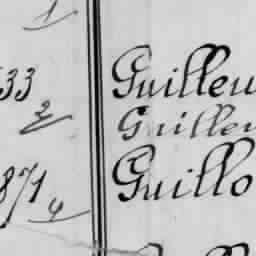 1
33 Guilleu
2 Guilleu
871 Guillo
4